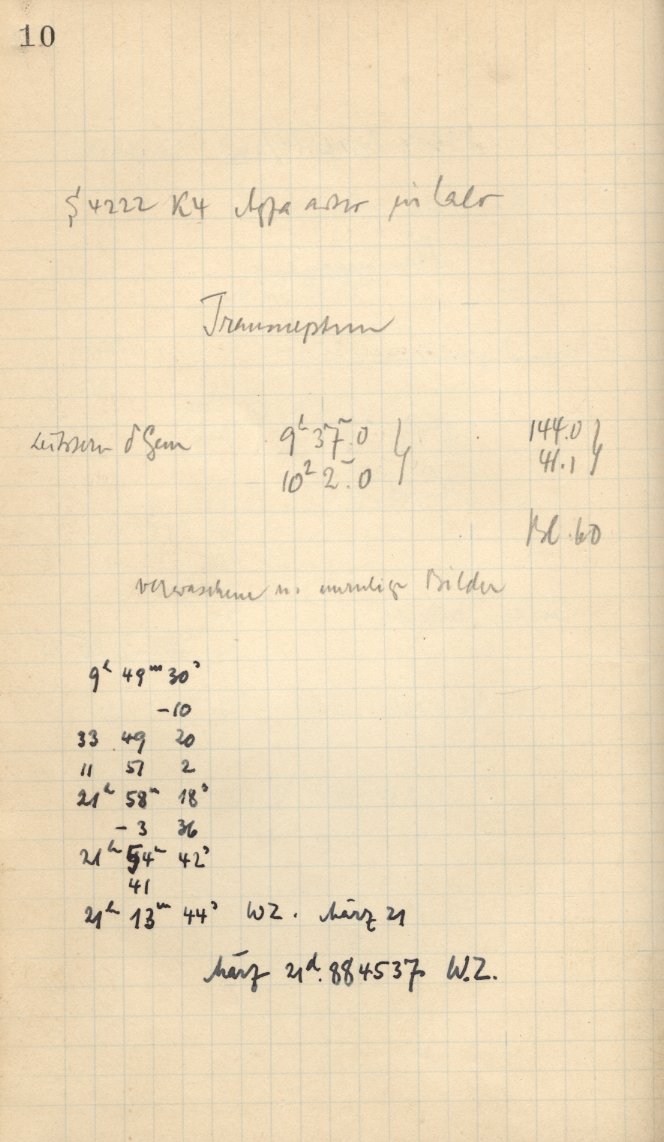 10
4222 K4
Transneptun
Leitstern δ Gem 9ʰ 37ᵐ.0 144.0
10ʰ 2ᵐ.0 41.1
Bl. 60
verwaschene u. unruhige Bilder
9ʰ 49ᵐ 30ˢ
-10
33 49 20
11 51 2
21ʰ 58ᵐ 18ˢ
-3 36
21ʰ 54ᵐ 42ˢ
41
21ʰ 13ᵐ 44ˢ WZ. März 21
März 21ᵈ.884537 W.Z.